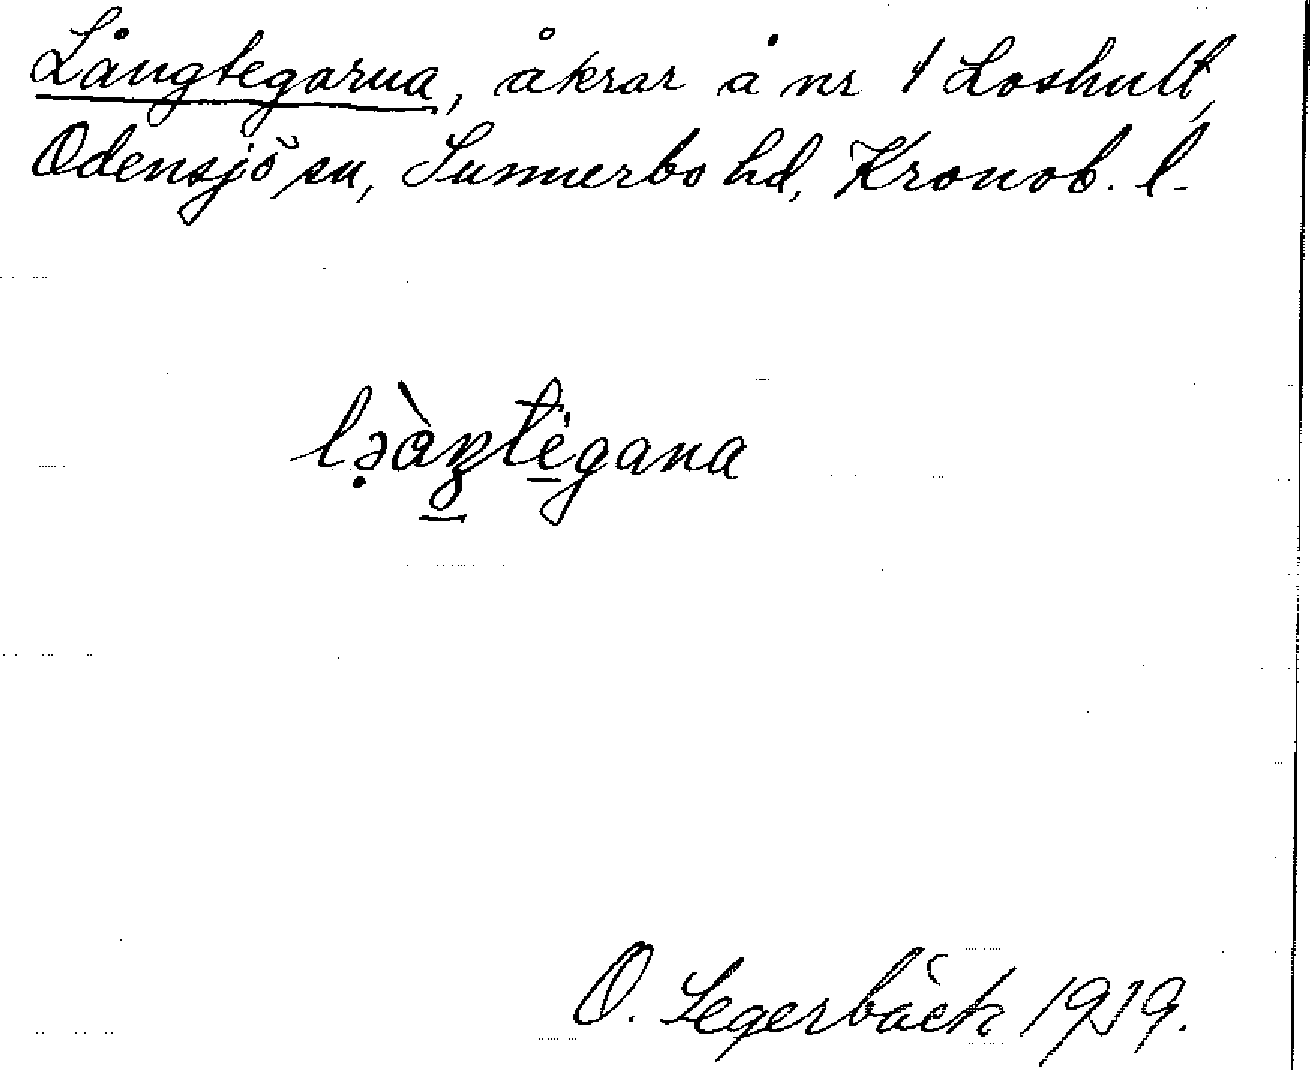 Långtegarna, åkrar å nr 1 Loshult,
Odensjö sn, Sunnerbo hd, Kronob. l.
O. Segerbäck 1939.